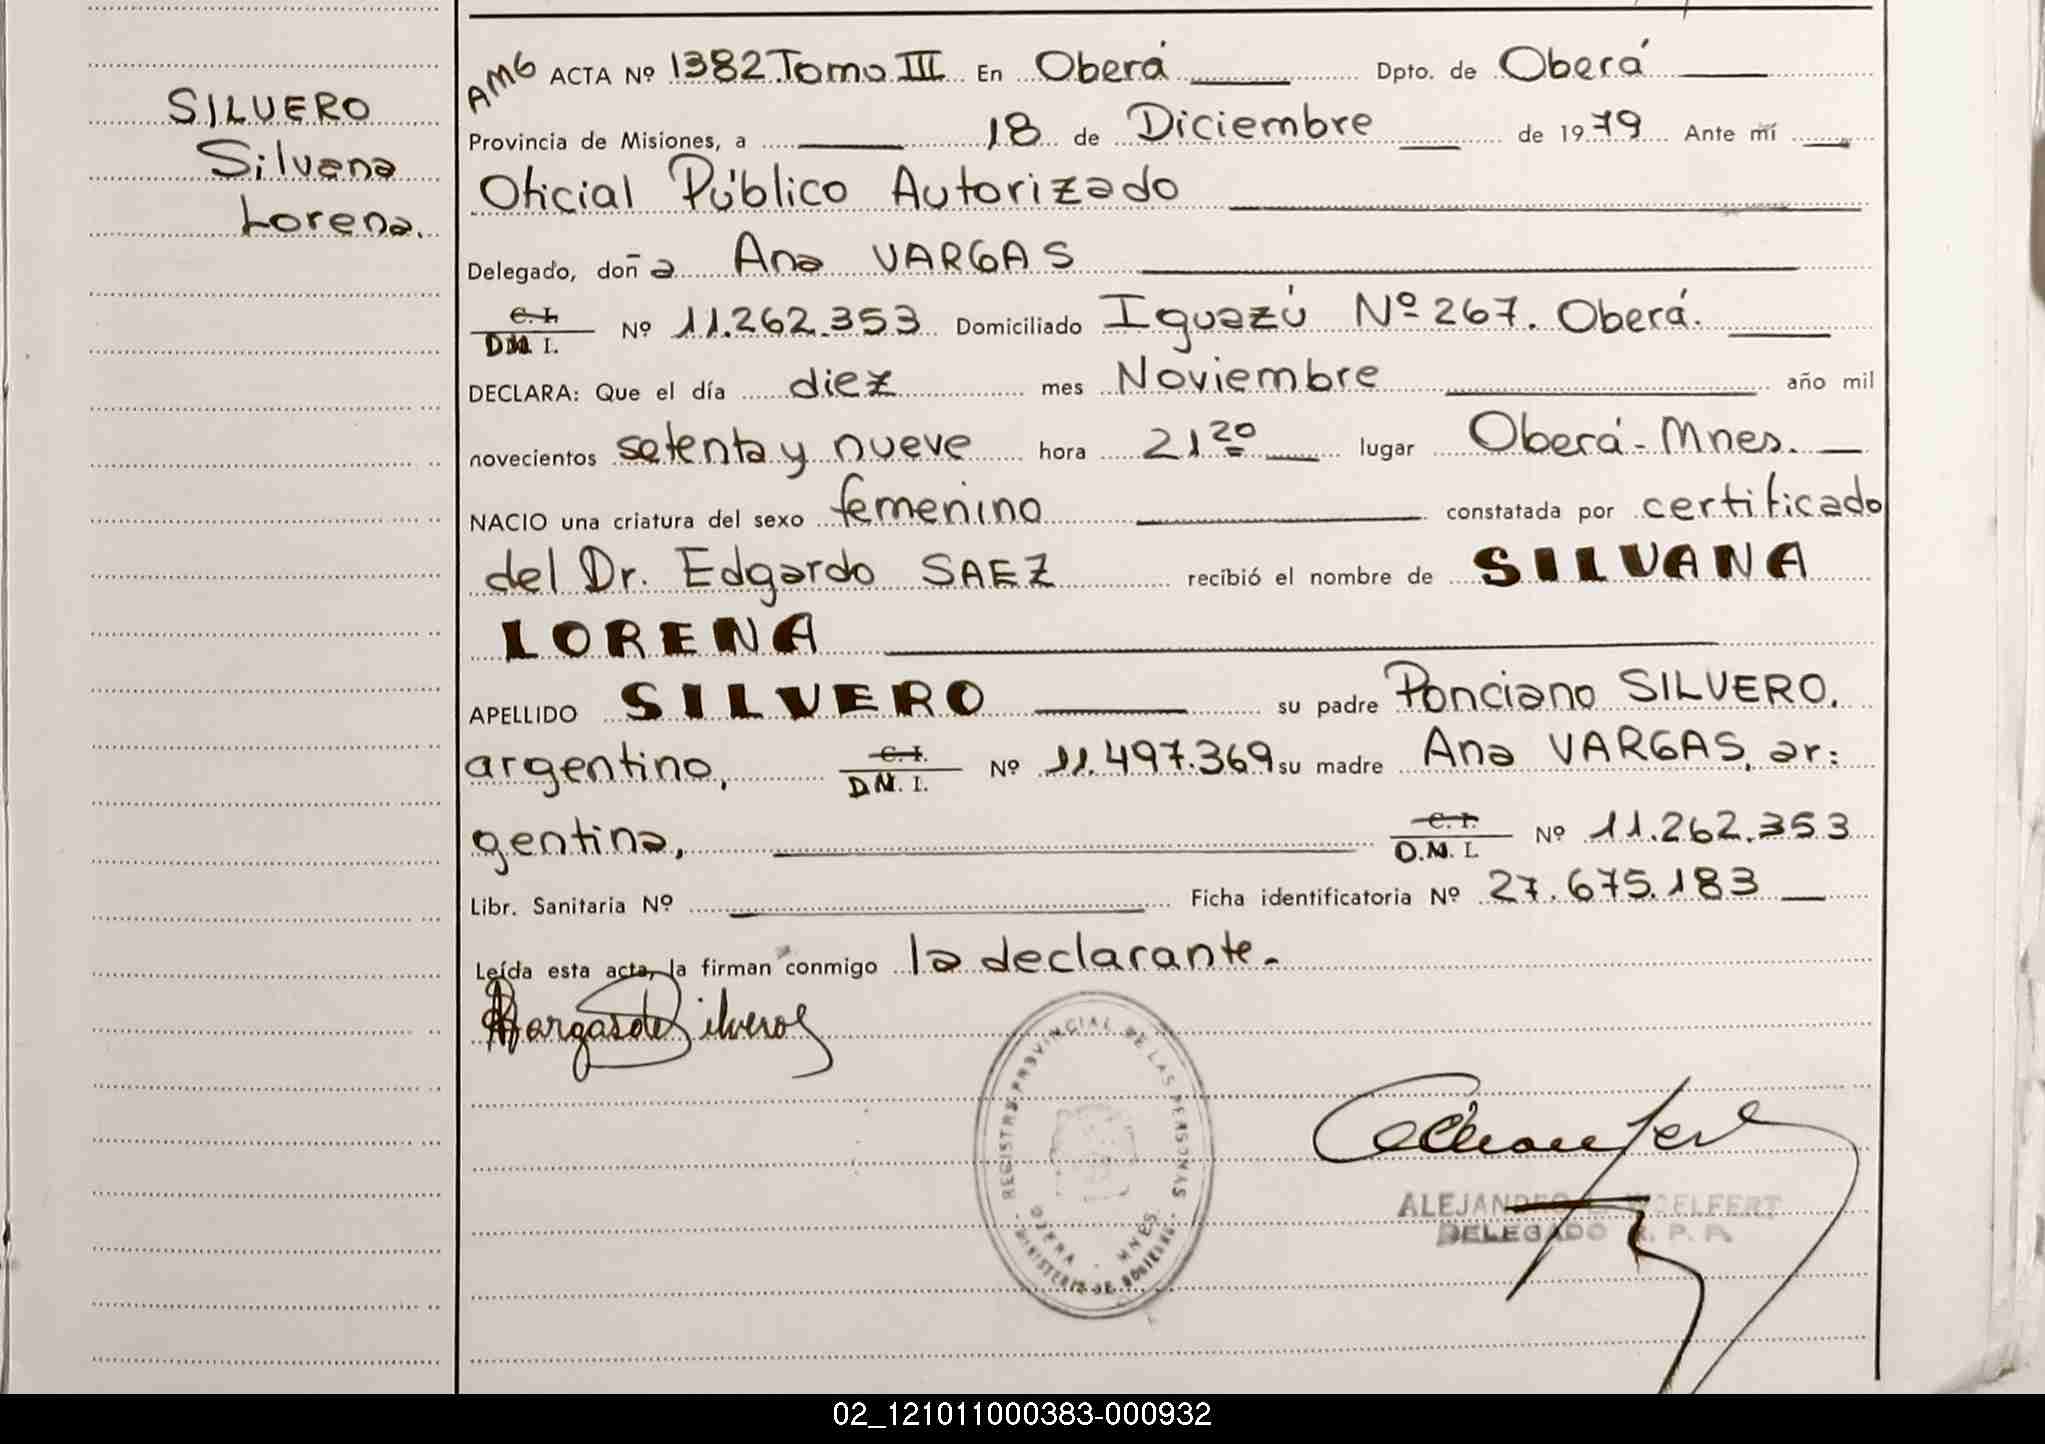 SILVERO
Silvana
Lorena.
AMG ACTA Nº 1382 Tomo III En Oberá Dpto. de Oberá
Provincia de Misiones, a 18 de Diciembre de 1979 Ante mí
Oficial Público Autorizado
Delegado, doña Ana VARGAS
C. I.
D.N. I. Nº 11.262.353 Domiciliado Iguazú Nº 267. Oberá.
DECLARA: Que el día diez mes Noviembre año mil
novecientos setenta y nueve hora 21 20 lugar Oberá - Mnes.
NACIO una criatura del sexo femenino constatada por certificado
del Dr. Edgardo SAEZ recibió el nombre de SILVANA
LORENA
APELLIDO SILVERO su padre Ponciano SILVERO.
argentino, C. I. D.N. I. Nº 11.497.369 su madre Ana VARGAS, ar:
gentina, C. I. D.N. I. Nº 11.262.353
Libr. Sanitaria Nº Ficha identificatoria Nº 27.675.183
Leída esta acta, la firman conmigo la declarante.
Vargas de Silvero
REGISTRO PROVINCIAL DE LAS PERSONAS
OBERA - MNES.
MINISTERIO DE GOBIERNO
ALEJANDRO
DELEGADO R. P. P.
02_121011000383-000932